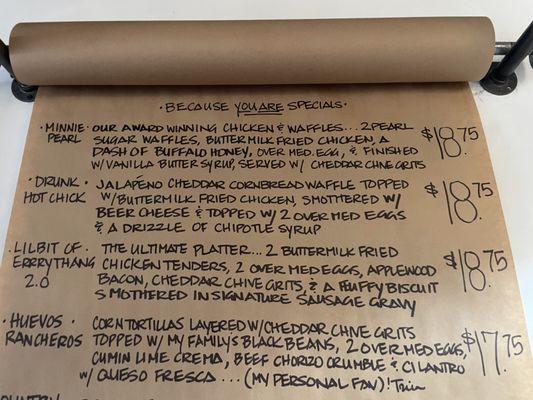 · BECAUSE YOU ARE SPECIALS ·
· MINNIE · OUR AWARD WINNING CHICKEN & WAFFLES... 2 PEARL $18.75
PEARL SUGAR WAFFLES, BUTTERMILK FRIED CHICKEN, A
DASH OF BUFFALO HONEY, OVER MED. EGG, & FINISHED
W/ VANILLA BUTTER SYRUP, SERVED W/ CHEDDAR CHIVE GRITS
· DRUNK · JALAPEÑO CHEDDAR CORNBREAD WAFFLE TOPPED $18.75
HOT CHICK W/ BUTTERMILK FRIED CHICKEN, SMOTHERED W/
BEER CHEESE & TOPPED W/ 2 OVER MED EGGS
& A DRIZZLE OF CHIPOTLE SYRUP
· LILBIT OF · THE ULTIMATE PLATTER... 2 BUTTERMILK FRIED $18.75
ERRYTHANG CHICKEN TENDERS, 2 OVER MED EGGS, APPLEWOOD
2.0 BACON, CHEDDAR CHIVE GRITS, & A FLUFFY BISCUIT
SMOTHERED IN SIGNATURE SAUSAGE GRAVY
· HUEVOS · CORN TORTILLAS LAYERED W/ CHEDDAR CHIVE GRITS $17.75
RANCHEROS TOPPED W/ MY FAMILY'S BLACK BEANS, 2 OVER MED EGGS,
CUMIN LIME CREMA, BEEF CHORIZO CRUMBLE & CILANTRO
W/ QUESO FRESCA ... (MY PERSONAL FAV)!